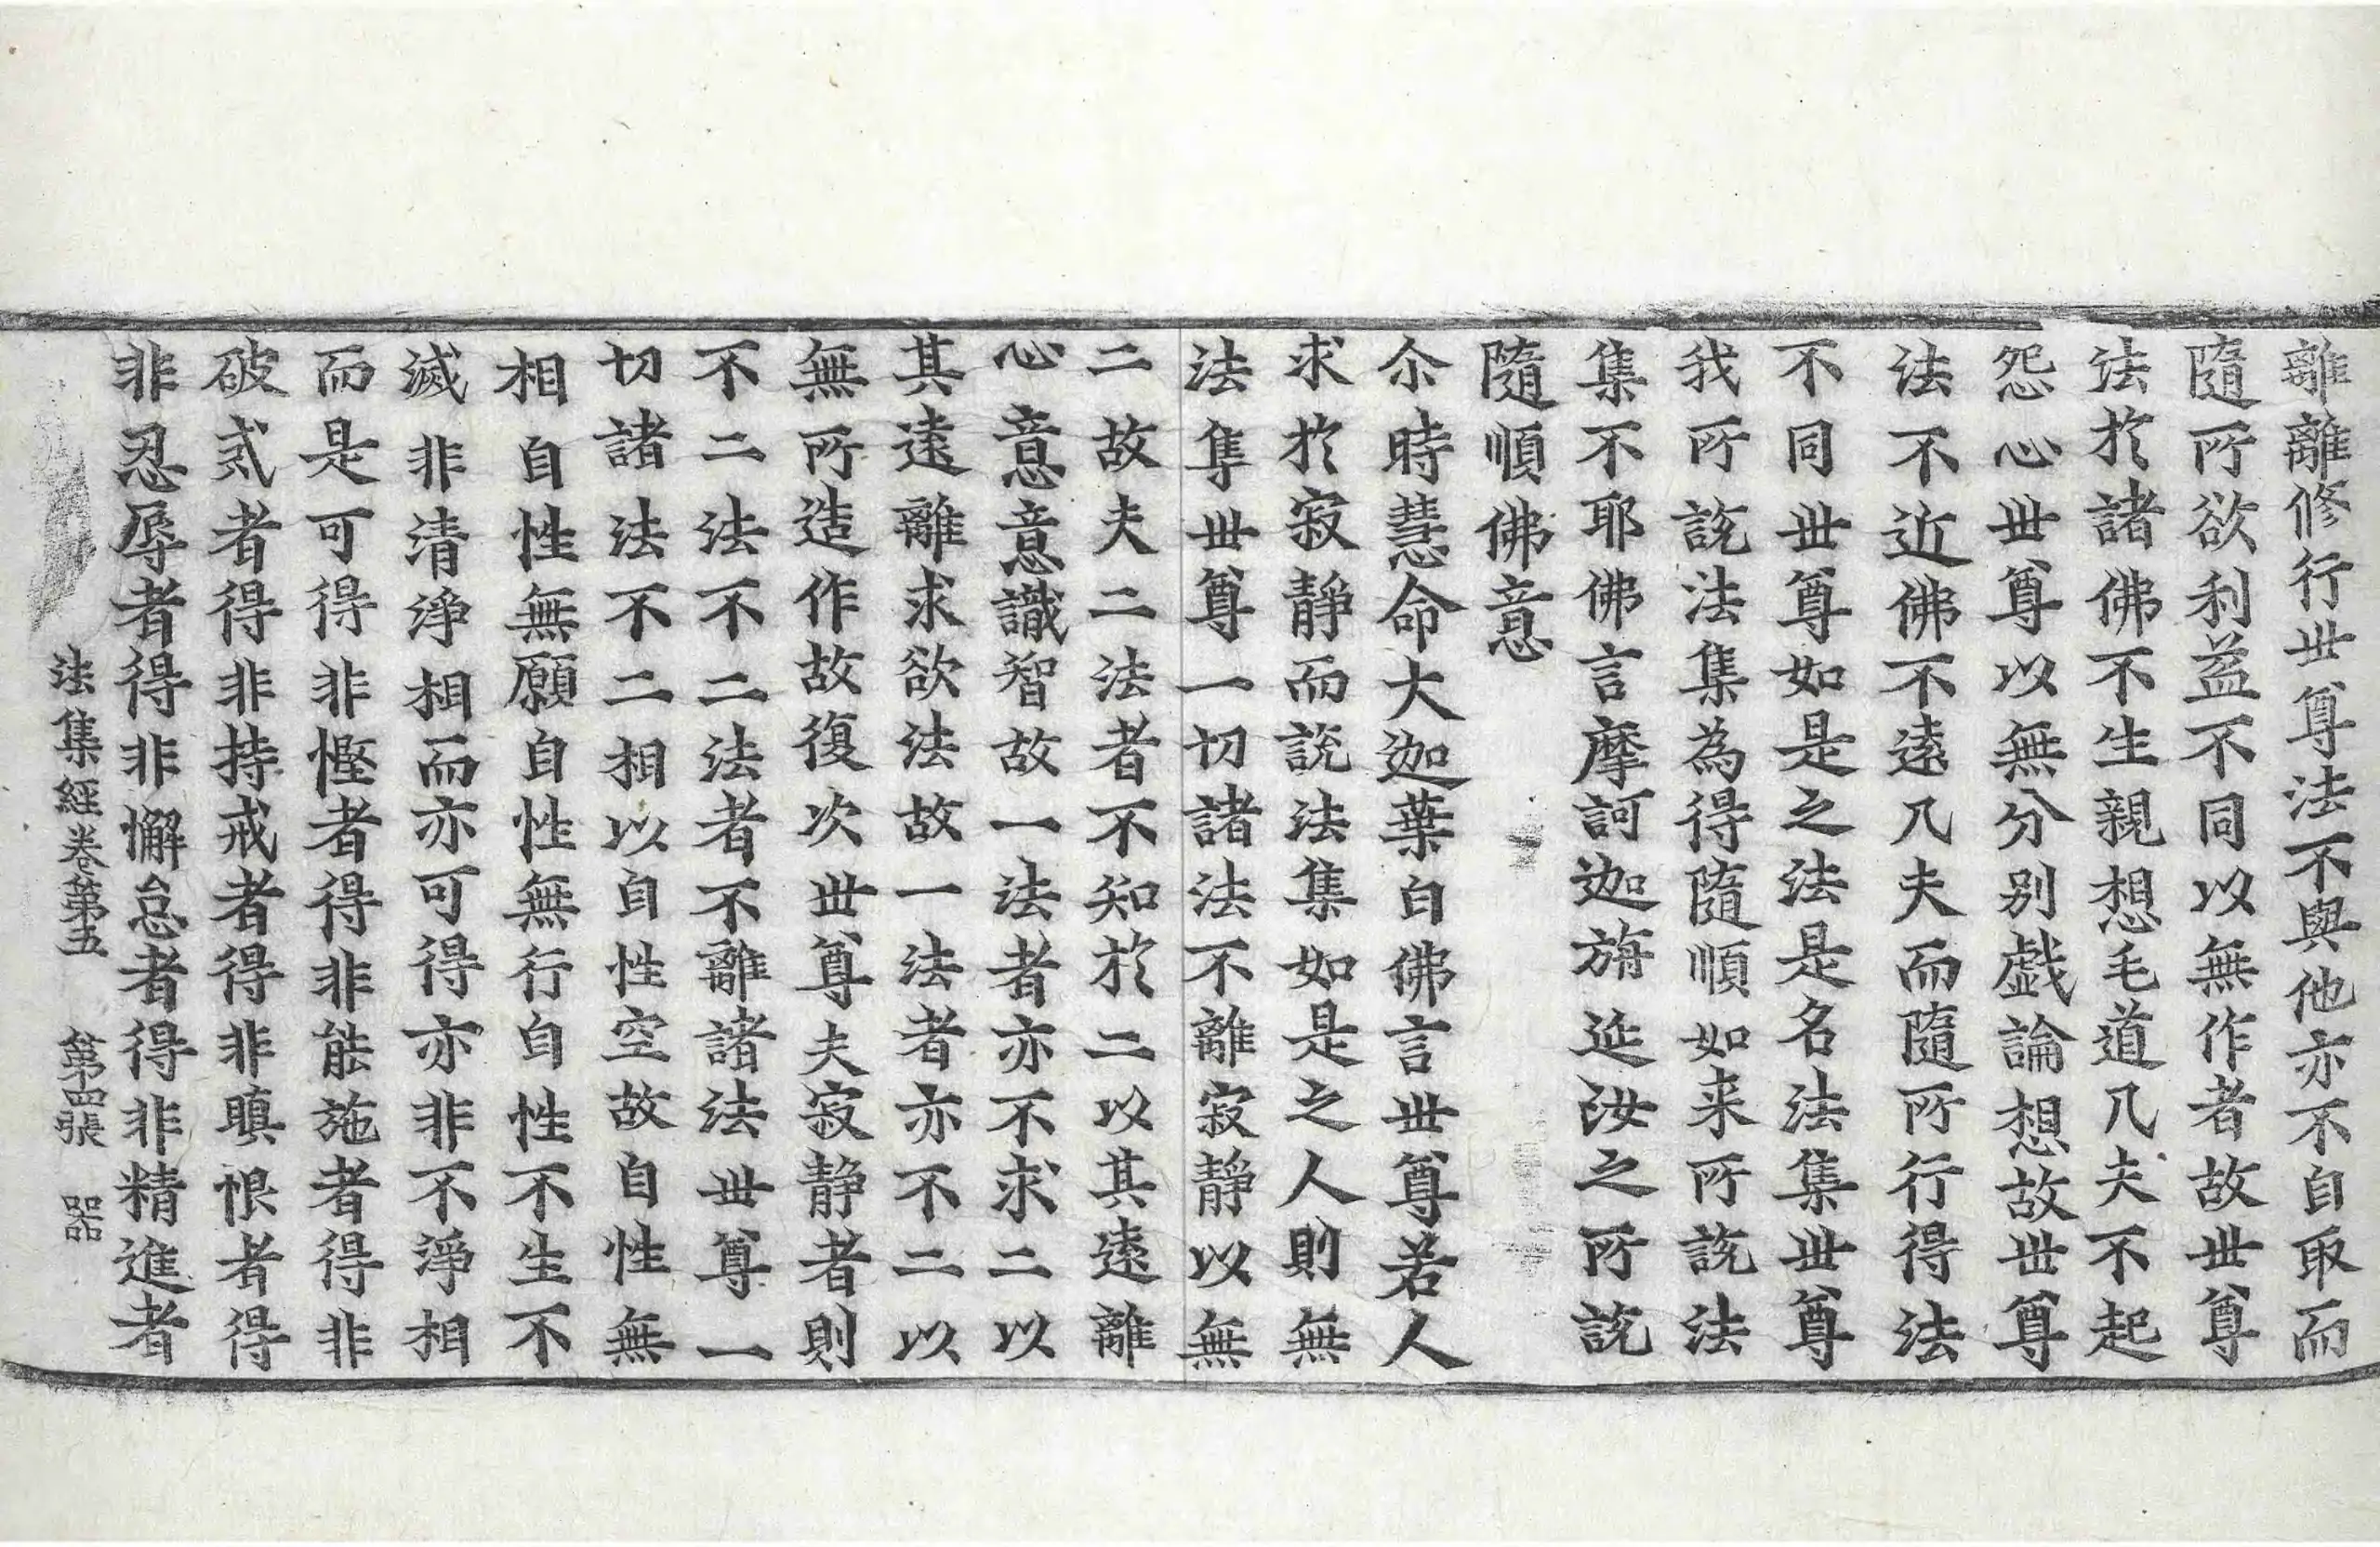 離離修行丗尊法不與他亦不自取而
隨所欲利益不同以無作者故丗尊
法於諸佛不生親想毛道凡夫不起
怨心丗尊以無分别戯論想故丗尊
法不近佛不遠凡夫而隨所行得法
不同丗尊如是之法是名法集丗尊
我所說法集為得隨順如来所說法
集不耶佛言摩訶迦旃延汝之所說
隨順佛意
尒時慧命大迦葉白佛言丗尊若人
求於寂靜而說法集如是之人則無
法集丗尊一切諸法不離寂靜以無
二故夫二法者不知於二以其遠離
心意意識智故一法者亦不求二以
其遠離求欲法故一法者亦不二以
無所造作故復次丗尊夫寂靜者則
不二法不二法者不離諸法丗尊一
切諸法不二相以自性空故自性無
相自性無願自性無行自性不生不
滅非清淨相而亦可得亦非不淨相
而是可得非慳者得非能施者得非
破戒者得非持戒者得非瞋恨者得
非忍辱者得非懈怠者得非精進者
法集經卷第五 第四張 器